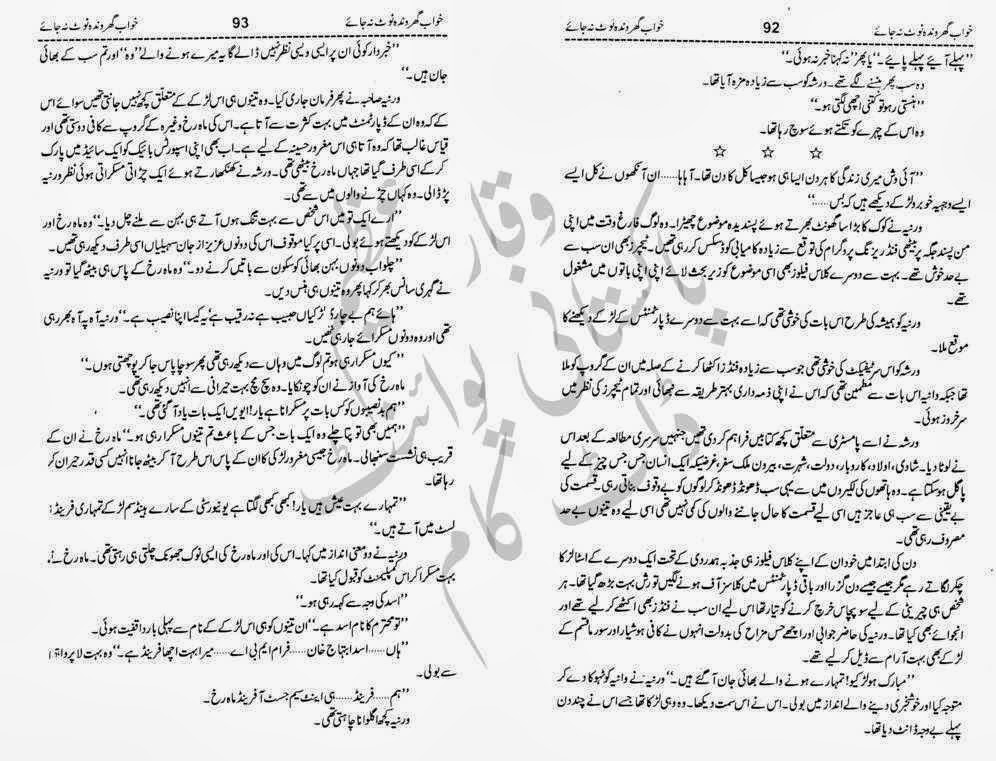 خواب گھروندہ ٹوٹ نہ جائے 92 خواب گھروندہ ٹوٹ نہ جائے
”پہلے آیئے پہلے پایئے۔“ یا پھر ”نہ کہنا خبر نہ ہوئی۔“
وہ سب پھر ہنسنے لگے تھے۔ ورشہ کو سب سے زیادہ مزہ آیا تھا۔
”ہنستی رہو تو کتنی اچھی لگتی ہو۔“
وہ اس کے چہرے کو تکتے ہوئے سوچ رہا تھا۔
☆ ☆ ☆
”آئی وش میری زندگی کا ہر دن ایسا ہی ہو جیسا کل کا دن تھا۔ آہاہا......ان آنکھوں نے کل ایسے
ایسے وجیہہ خوبرو لڑکے دیکھے ہیں کہ بس......“
ورنیہ نے کوک کا بڑا سا گھونٹ بھرتے ہوئے پسندیدہ موضوع چھیڑا۔ وہ لوگ فارغ وقت میں اپنی
من پسند جگہ پر بیٹھی فنڈ ریزنگ پروگرام کی توقع سے زیادہ کامیابی کو ڈسکس کر رہی تھیں۔ ٹیچرز بھی ان سب سے
بے حد خوش تھے۔ بہت سے دوسرے کلاس فیلوز بھی اسی موضوع کو زیر بحث لائے اپنی اپنی باتوں میں مشغول
تھے۔
ورنیہ کو ہمیشہ کی طرح اس بات کی خوشی تھی کہ اسے بہت سے دوسرے ڈپارٹمنٹس کے لڑکے دیکھنے کا
موقع ملا۔
ورشہ کو اس سرٹیفکیٹ کی خوشی تھی جو سب سے زیادہ فنڈز اکٹھا کرنے کے صلہ میں ان کے گروپ کو ملا
تھا جبکہ وانیہ اس بات سے مطمئن تھی کہ اس نے اپنی ذمہ داری بہتر طریقہ سے نبھائی اور تمام ٹیچرز کی نظر میں
سرخرو ہوئی۔
ورشہ نے اسے پامسٹری سے متعلق کچھ کتابیں فراہم کر دی تھیں جنہیں سرسری مطالعہ کے بعد اس
نے لوٹا دیا۔ شادی، اولاد، کاروبار، دولت، شہرت، بیرون ملک سفر، غرضیکہ ایک انسان جس جس چیز کے لیے
پاگل ہو سکتا ہے۔ وہ ہاتھوں کی لکیروں میں سے یہی سب ڈھونڈ ڈھونڈ کر لوگوں کو بے وقوف بناتی رہی۔ قسمت کی
بے یقینی سے سب ہی عاجز ہیں اسی لیے قسمت کا حال جاننے والوں کی کمی نہیں تھی اسی لیے وہ تینوں بے حد
مصروف رہی تھی۔
دن کی ابتدا میں خود ان کے اپنے کلاس فیلوز ہی جذبہ ہمدردی کے تحت ایک دوسرے کے اسٹالز کا
چکر لگاتے رہے مگر جیسے جیسے دن گزرا اور باقی ڈپارٹمنٹس میں کلاسز آف ہونے لگیں تو رش بہت بڑھ گیا تھا۔ ہر
شخص ہی چیریٹی کے لیے سو پچاس خرچ کرنے کو تیار تھا اس لیے ان سب نے فنڈز بھی اکٹھے کر لیے تھے اور
انجوائے بھی کیا تھا۔ ورنیہ کی حاضر جوابی اور اچھے حس مزاح کی بدولت انہوں نے کافی ہوشیار اور سورما قسم کے
لڑکے بھی بہت آرام سے ڈیل کر لیے تھے۔
”مبارک ہو لڑکیو! تمہارے ہونے والے بھائی جان آ گئے ہیں۔“ ورنیہ نے وانیہ کو ٹہوکا دے کر
متوجہ کیا اور خوشخبری دینے والے انداز میں بولی۔ اس نے اس سمت دیکھا۔ وہ وہی لڑکا تھا جسے اس نے چند دن
پہلے بے وجہ ڈانٹ دیا تھا۔
خواب گھروندہ ٹوٹ نہ جائے 93 خواب گھروندہ ٹوٹ نہ جائے
”خبردار کوئی ان پر ایسی ویسی نظر نہیں ڈالے گا یہ میرے ہونے والے ”وہ“ اور تم سب کے بھائی
جان ہیں۔“
ورنیہ صاحبہ نے پھر فرمان جاری کیا۔ وہ تینوں ہی اس لڑکے کے متعلق کچھ نہیں جانتی تھیں سوائے اس
کے کہ وہ ان کے ڈپارٹمنٹ میں بہت کثرت سے آتا ہے۔ اس کی ماہ رخ وغیرہ کے گروپ سے کافی دوستی تھی اور
قیاس غالب تھا کہ وہ آتا ہی اس مغرور حسینہ کے لیے ہے۔ اب بھی اپنی اسپورٹس بائیک کو ایک سائیڈ میں پارک
کر کے اسی طرف گیا تھا جہاں ماہ رخ بیٹھی تھی۔ ورشہ نے کھنکھارتے ہوئے ایک چڑاتی مسکراتی ہوئی نظر ورنیہ
پر ڈالی۔ وہ کہاں چڑنے والوں میں سے تھی۔
”ارے ایک تو میں اس شخص سے بہت تنگ ہوں آتے ہی بہن سے ملنے چل دیا۔“ وہ ماہ رخ اور
اس لڑکے کو دیکھتے ہوئے بولی۔ اسی پر کیا موقوف اس کی دونوں عزیز از جان سہیلیاں اسی طرف دیکھ رہی تھیں۔
”چلو اب دونوں بہن بھائی کو سکون سے باتیں کرنے دو۔“ وہ ماہ رخ کے پاس ہی بیٹھ گیا تو ورنیہ
نے گہری سانس بھر کر کہا پھر وہ تینوں ہی ہنس دیں۔
”ہائے ہم بے چارڈ لڑکیاں حبیب ہے نہ رقیب ہے یہ کیسا اپنا نصیب ہے۔“ ورنیہ آہ پہ آہ بھر رہی
تھی اور وہ دونوں مسکرائے جا رہی تھیں۔
”کیوں مسکرا رہی ہو تم لوگ میں وہاں سے دیکھ رہی تھی پھر سوچا پاس جا کر پوچھتی ہوں۔“
ماہ رخ کی آواز نے ان کو چونکایا۔ وہ سچ مچ بہت حیرانی سے انہیں دیکھ رہی تھی۔
”ہم بدنصیبوں کو کس بات پر مسکرانا ہے یار! ایویں ایک بات یاد آ گئی تھی۔“
”ہمیں بھی تو پتا چلے وہ ایک بات جس کے باعث تم تینوں مسکرا رہی ہو۔“ ماہ رخ نے ان کے
قریب ہی نشست سنبھالی۔ ماہ رخ جیسی مغرور لڑکی کا ان کے پاس اس طرح آ کر بیٹھ جانا انہیں کسی قدر حیران کر
رہا تھا۔
”تمہارے بہت عیش ہیں یار! کبھی کبھی لگتا ہے یونیورسٹی کے سارے ہینڈسم لڑکے تمہاری فرینڈ
لسٹ میں آتے ہیں۔“
ورنیہ نے ذومعنی انداز میں کہا۔ اس کی اور ماہ رخ کی ایسی نوک جھونک چلتی ہی رہتی تھی۔ ماہ رخ نے
بہت مسکرا کر اس کمپلیمنٹ کو قبول کیا تھا۔
”اسد کی وجہ سے کہہ رہی ہو۔“
”تو محترم کا نام اسد ہے۔“ ان تینوں کو ہی اس لڑکے کے نام سے پہلی بار واقفیت ہوئی۔
”ہاں......اسد ابتہاج خان......فرام ایم بی اے......میرا بہت اچھا فرینڈ ہے۔“ وہ بہت لا پروائی
سے بولی۔
”ہم......فرینڈ......ہی اینٹ سیم جسٹ آ فرینڈ ماہ رخ۔
ورنیہ کچھ اگلوانا چاہتی تھی۔